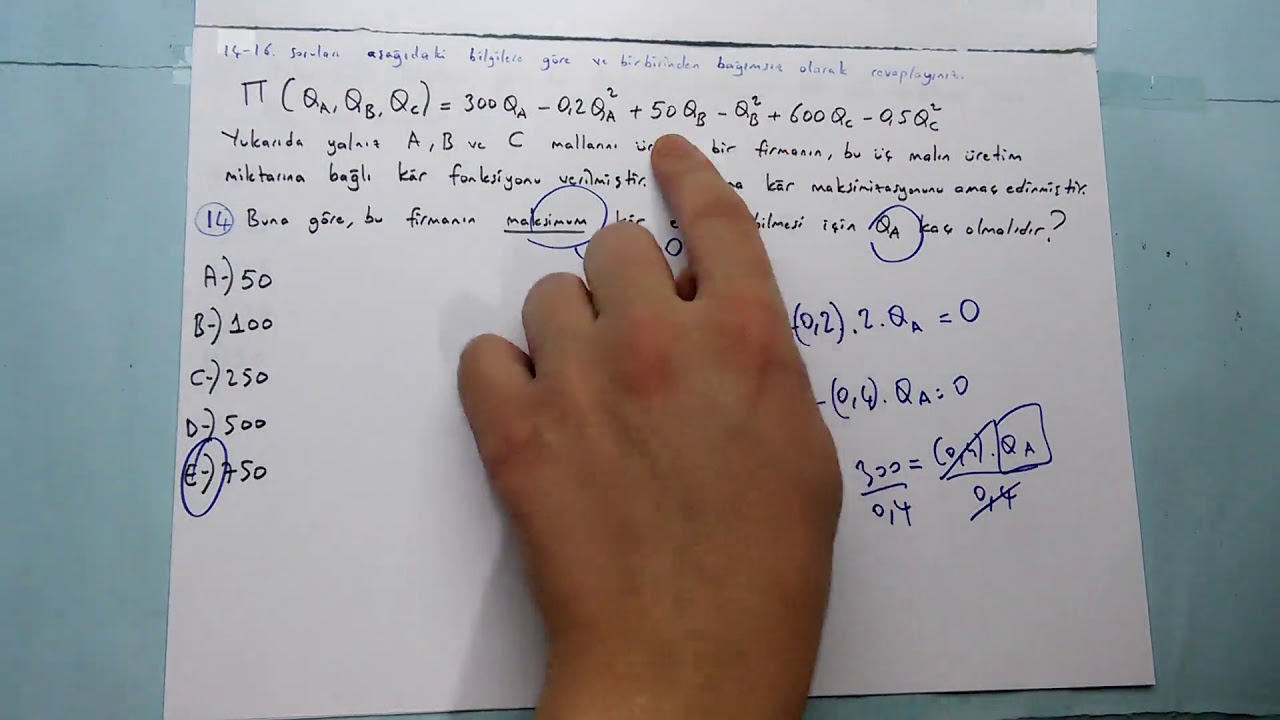 14-16. soruları aşağıdaki bilgilere göre ve birbirinden bağımsız olarak cevaplayınız.
Π (Q_A, Q_B, Q_C) = 300Q_A - 0,2Q_A² + 50Q_B - Q_B² + 600Q_C - 0,5Q_C²
Yukarıda yalnız A, B ve C mallarını bir firmanın, bu üç malın üretim
miktarına bağlı kâr fonksiyonu verilmiştir. kâr maksimizasyonunu amaç edinmiştir.
14 Buna göre, bu firmanın maksimum için Q_A kaç olmalıdır?
0
A-) 50
B-) 100
C-) 250
D-) 500
E-) 750
(0,2).2.Q_A = 0
-(0,4).Q_A = 0
300 = (0,4).Q_A
0,4 0,4